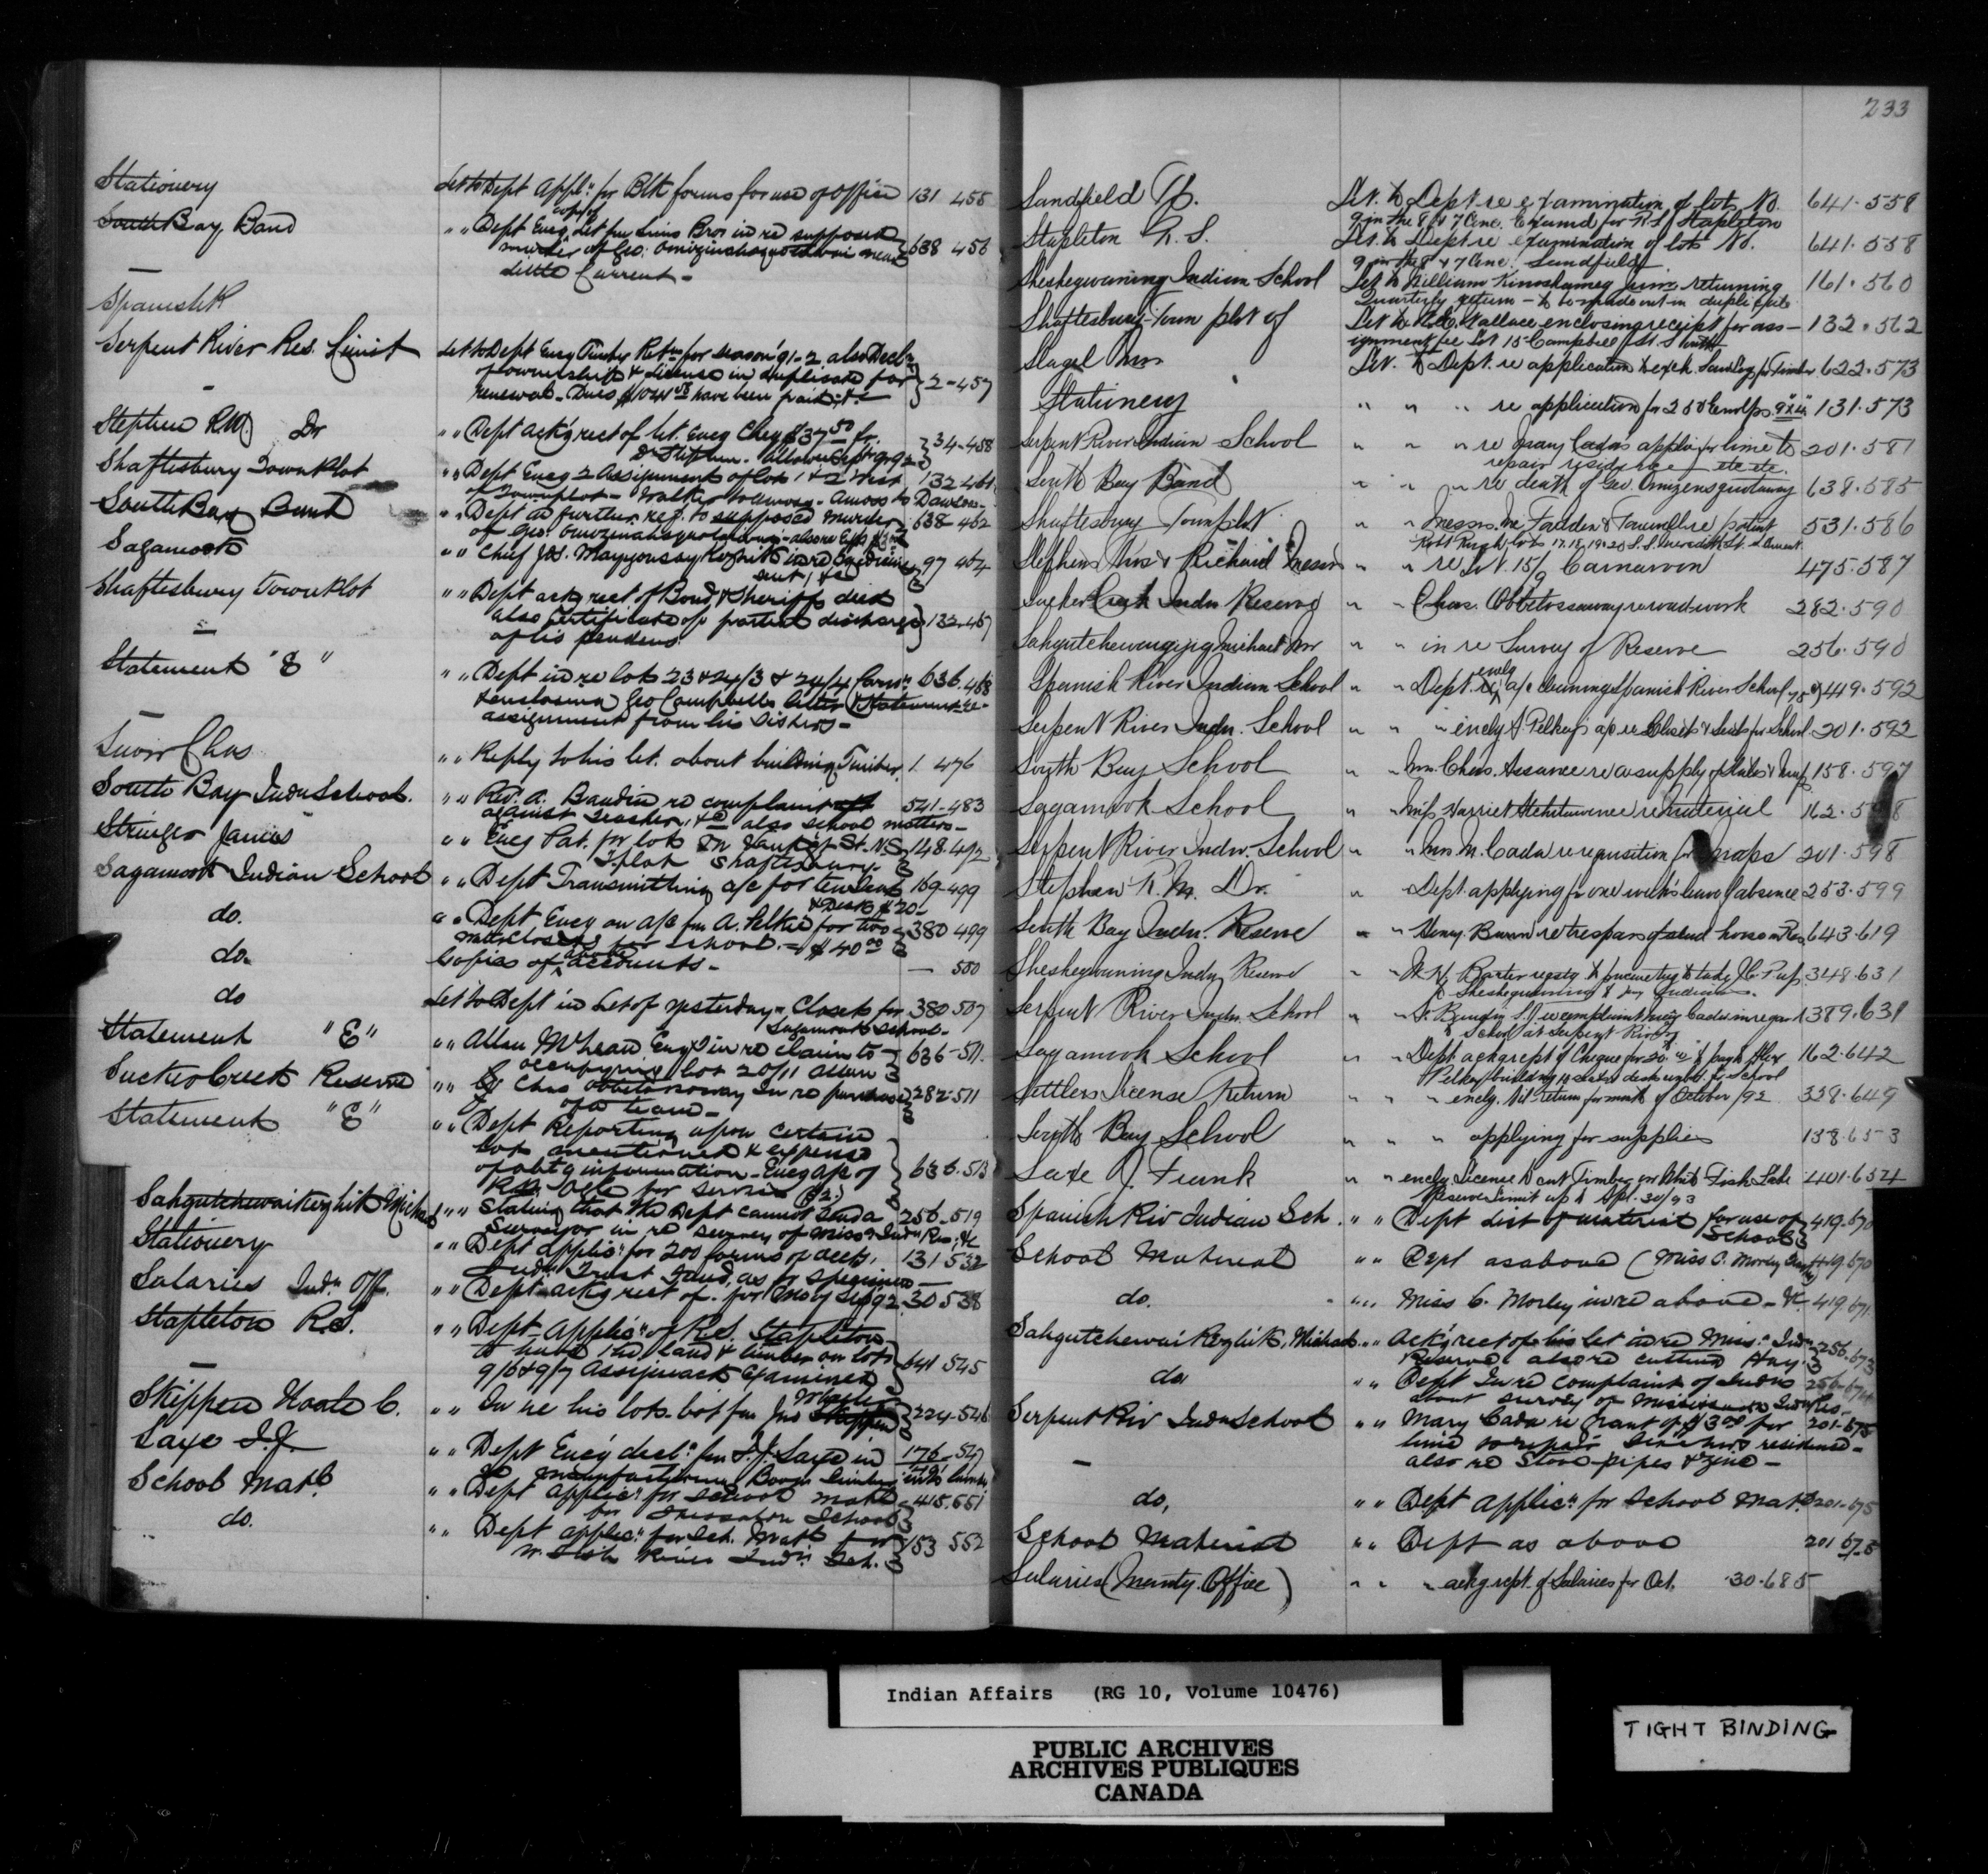 Stationery Let to Dept Appln for Blk forms for use of Office 131 455
South Bay Band " " Dept Encg copy of Let fm Sims Bros in re supposed
murder of Geo. near 638 456
Little Current -
Spanish R
Serpent River Res. Limit Let to Dept Encg Timber Retn for season '91-2 also Decln
of ownership & License in duplicate for 2-457
renewal - Dues have been paid
Stephen R.M. Dr " " Dept ack'g rect of let. Encg Cheq $37 50 fr.
Dr Stephen - allowance 34-458
Shaftesbury Town Plot " " Dept Encg 2 Assignments of lots 1 & 2 West 132 461
Townplot - Walker to Amos - Amos to Dawson -
South Bay Band " " Dept as further ref. to supposed murder 638-462
of Geo.
Sagamook " " Chief Jas. in re Medicine 97 464
sent, &c
Shaftesbury Town Plot " " Dept ackg rect of Bond & Sheriff's deed
also Certificate of partial discharge 132-467
of lis pendens
Statement "E" " " Dept in re lots 23 & 24/3 & 24/4 Carn. 636.468
& enclosing Geo Campbells letter & Statement re
assignment from his sisters -
Chas " " Reply to his let. about building Timber 1 476
South Bay Indn School. " " Rev. A. Baudin re complaint 541-483
against teacher, &c also school matters -
Stringer James " " Encg Pat. for lots St. N.S. 148.492
T plot Shaftesbury -
Sagamook Indian School " " Dept Transmitting a/c for ten Seats 169-499
& Desks $20 -
do. " " Dept Encg an a/c fm A. Pelkie for two 380 499
Closets for School. - $40 00
do. Copies of above accounts - — 500
do Let to Dept in Let of yesterday - Closets for 380 507
Sagamook School -
Statement "E" " " Allan McLean Encg in re claim to 636-511.
occupying lot 20/11 Allan
Sucker Creek Reserve " " Chas in re purchase 282-511
of a team -
Statement "E" " " Dept Reporting upon certain
lots mentioned & expense
of obtg information - Encg a/c of 636.513
for service ($2.)
" " Stating that the Dept cannot send a 256-519
Surveyor in re survey of Missa Indn Res, &c
Stationery " " Dept applicn for 200 forms of accts, 131 532
Indn Trust Fund, as pr specimen -
Salaries Indn Off. " " Dept - ackg rect of. for Sep 92. 30 538
Stapleton R.S. " " Dept - Applicn of R.S. Stapleton
to have land & timber on lots 641 545
9/6 & 9/7 Assiginack Examined
Skippen Noah C. " " In re his lots bot fm Jno 224-546
Saxe J.J. " " Dept Encg decln fm J.J. Saxe in 176-547
re manufacturing Boom timber into lumber
School Matl. " " Dept applicn for School Matl 415.551
for School
do. " " Dept applicn for Sch. Matl for 153 552
W. Fish River Indn Sch.
233
Sandfield Tp. Let. to Dept re examination of lots No. 641.558
9 in the 8 & 7 Conc. Examd for R.S. Stapleton
Stapleton R. S. Let. to Dept re examination of lots No. 641.558
9 in the 8 & 7 Conc. Sandfield
Sheshegwaning Indian School Let to William Kinoshameg returning 161.560
Quarterly return - to be made out in duplicate
Shaftesbury - Town plot of Let to Wallace enclosing receipt for ass- 132.562
ignment fee Lot 15 Campbell St. South
Slagel Let. to Dept. re application to exch. for Timber 622.573
Stationery " " " re application for 250 Envlps 131.573
Serpent River Indian School " " " re Mary Cada's applicn for lime to 201.581
repair residence etc etc.
South Bay Band " " " re death of Geo. 638.585
Shaftesbury Townplot " " Messrs. McFadden & re patent 531.586
Robt Pugh, lots 17.18.19.20 S.S. Meredith St.
Stephens Thos & Richard Messrs " " re Lot. 15/9 Carnarvon 475.587
Sucker Creek Indn Reserve " " Chas. re road-work 282.590
Michael Mr " " in re Survey of Reserve 256.590
Spanish River Indian School " " Dept. encg a/c cleaning Spanish River School 449.592
Serpent River Indn. School " " " encg A. Pelkey's a/c re Closets & Seats for School. 201.592
South Bay School " " Mrs. Chas. Assance re a supply of Slates & 158.597
Sagamook School " " Miss Harriet re Material 162.598
Serpent River Indn. School " " Mrs M. Cada re requisition for maps 201.598
Stephen R. M. Dr. " Dept. applying for one week's leave of absence 253.599
South Bay Indn. Reserve " " Henry re trespass of stud horse on Res 643.619
Sheshegwaning Indn Reserve " " W. H. Baxter 348.631
to Sheshegwaning & Indians.
Serpent River Indn. School " " complaint Mary Cada in regard 389.631
to School at Serpent River
Sagamook School " " Dept. ackg rept of Cheque for 20. to pay Alex 162.642
Pelkey building for School
Settlers License Return " " " encg. Nil return for month of October /92 338.649
South Bay School " " " applying for supplies 158.653
Saxe J. Frank " " encg License to cut Timber on White Fish Lake 401.654
Reserve Limit up to Apl. 30/93
Spanish Riv Indian Sch. " " Dept List of material for use of 419.670
School
School Material " " Dept as above (Miss C. Morley 419.670
do. " " Miss C. Morley in re above - &c 419.671
Michael " " Ack'g rect of his let in re Miss. Indn 256.673
Reserve also re cutting Hay.
do. " " Dept In re complaint of Indns 256-674
about survey of Mississauga Indn Res -
Serpent Riv Indn School " " Mary Cada re Grant of $3.00 for 201-675
lime to repair teachers residence -
also re Stove-pipes & zinc -
do, " " Dept applicn for School Matl 201-675
School Material " " Dept as above 201 675
Salaries (Manity. Office) " " " ackg rept. of Salaries for Oct. 30.685
Indian Affairs (RG 10, Volume 10476)
PUBLIC ARCHIVES
ARCHIVES PUBLIQUES
CANADA
TIGHT BINDING